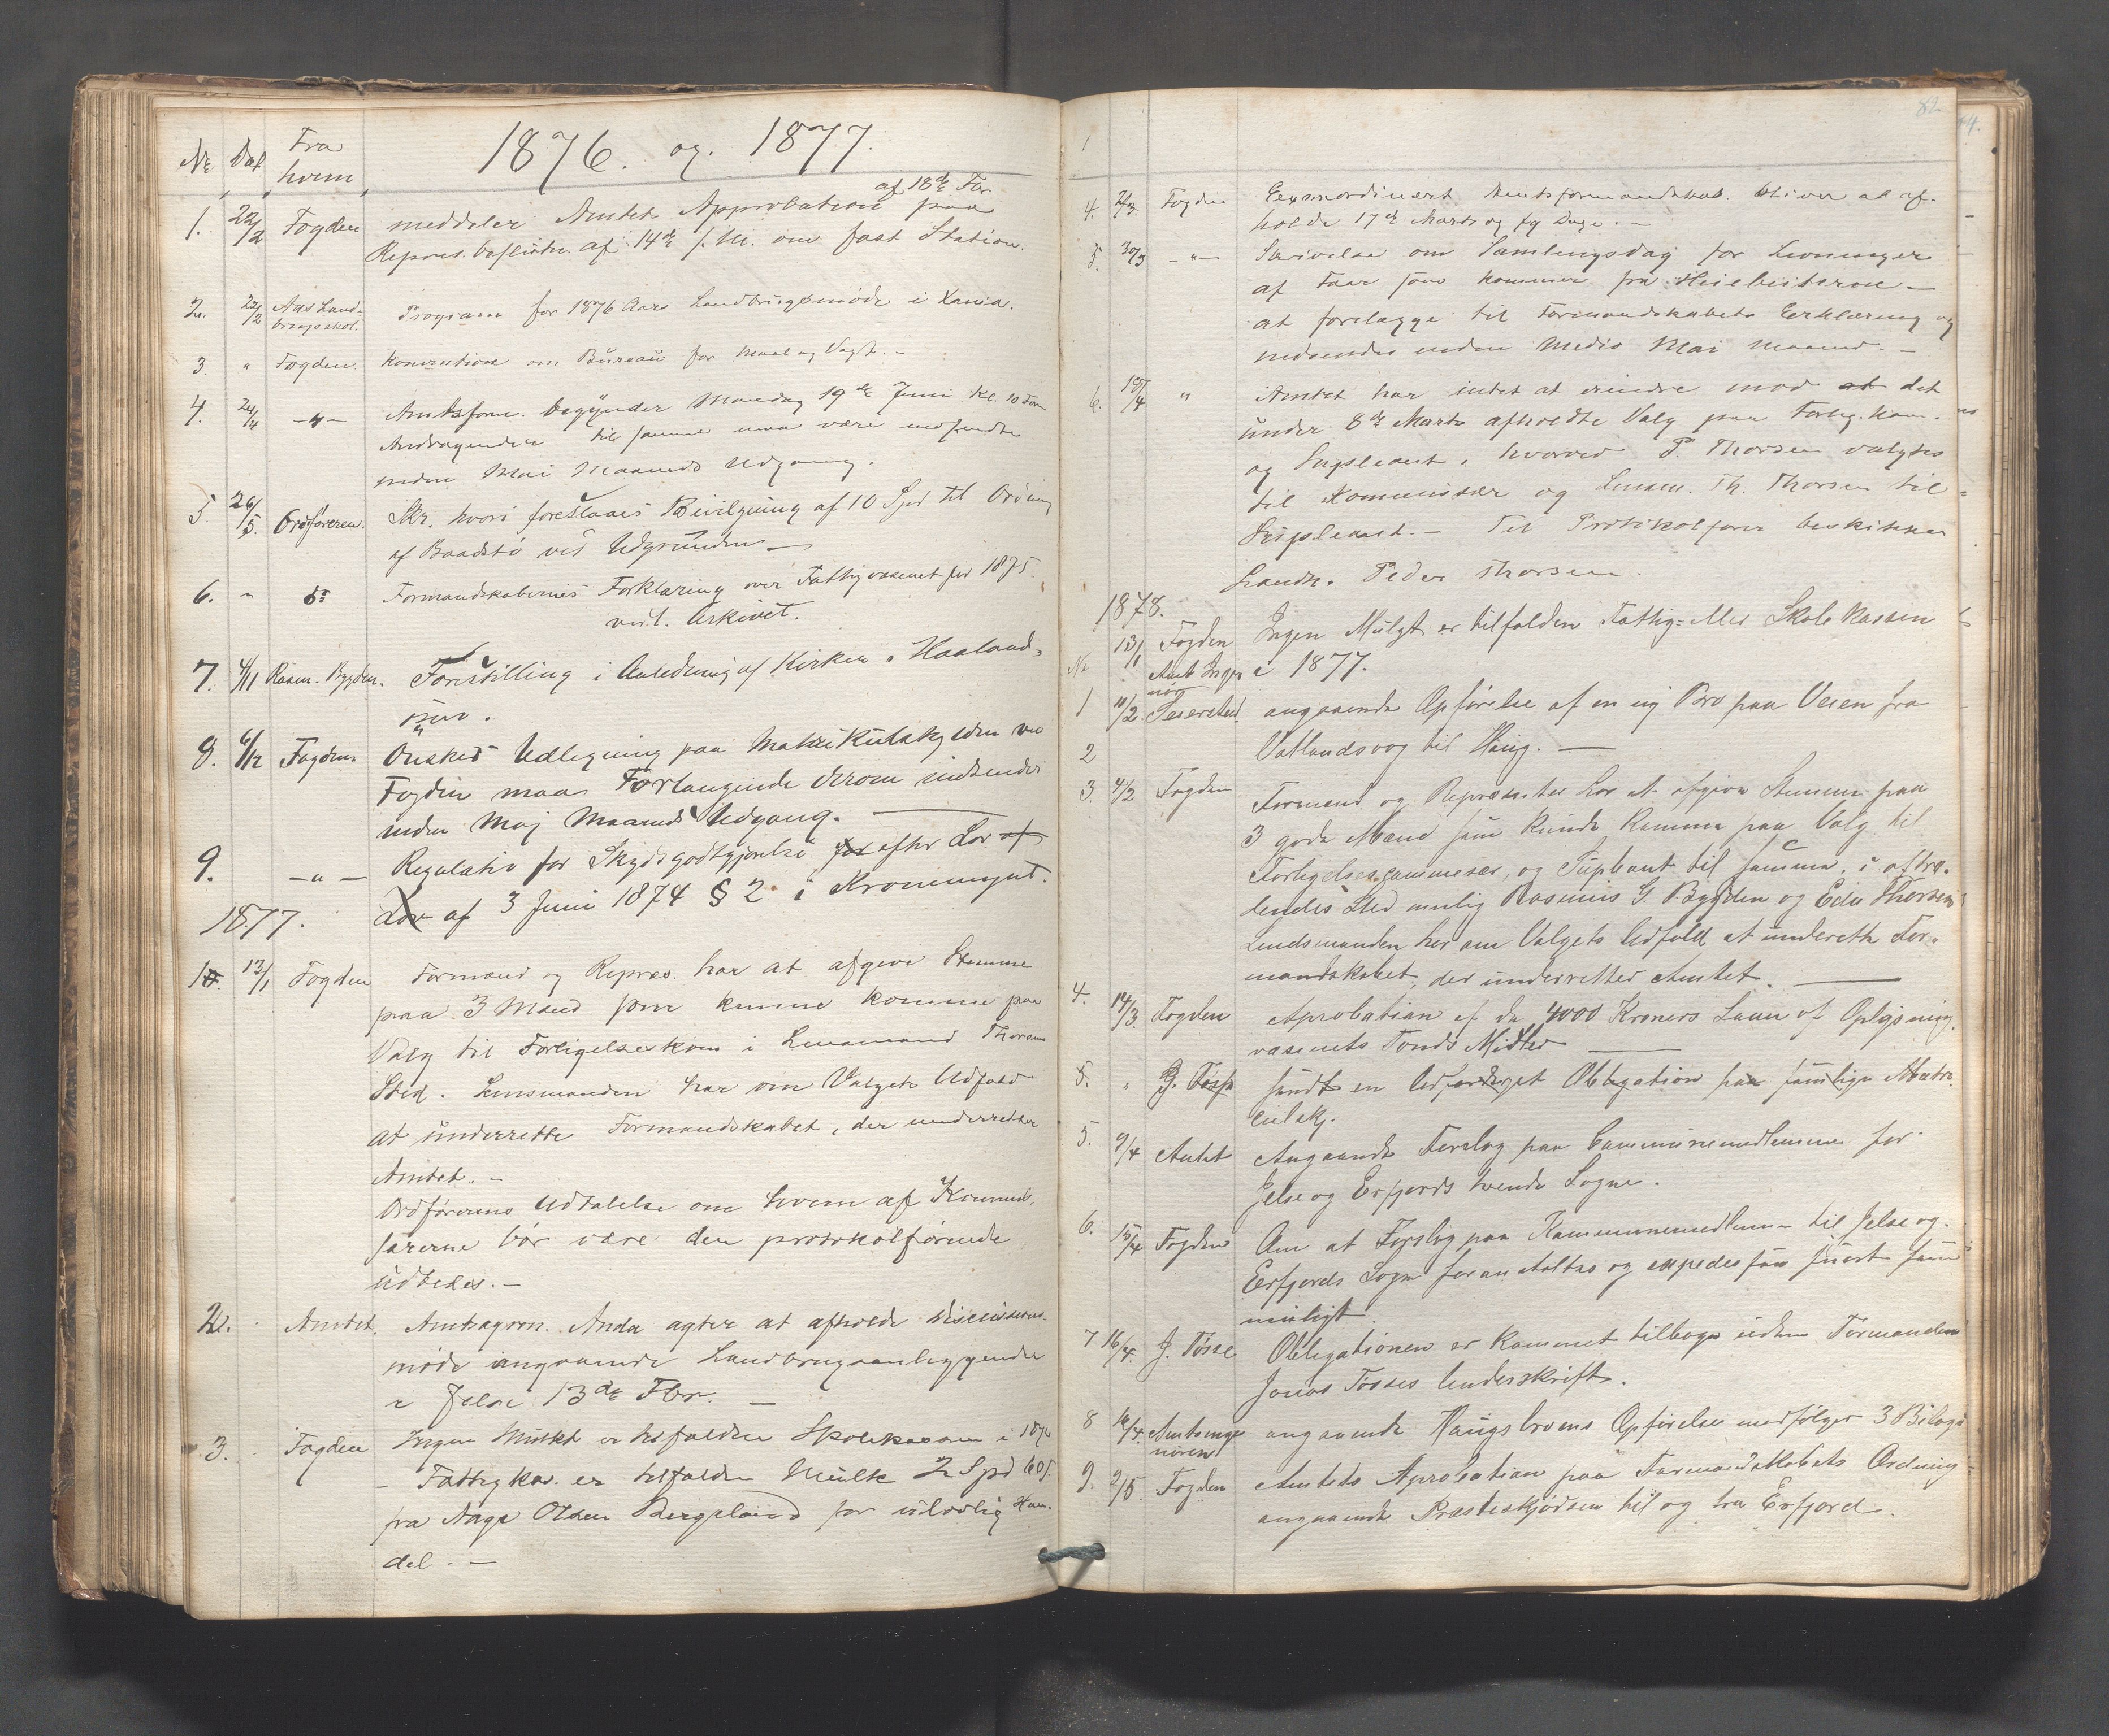 1876. og. 1877.
No Dat Fra hvem
1. 22/2 Fogden meddeler Amtets Approbation af 18de Fbr paa
Repræs. beslutn. af 14de f. M. om fast Station.
2. 22/2 Aas Land-
brugsskol. Program for 1876 Aars Landbrugsmöde i Xania.
3. " Fogden. Konvention om Bureau for Maal og Vægt. -
4. 24/4 -"- Amtsform. begynder Mandag 19de Juni Kl. 10 Form
Andragender til samme maa være indsendte
inden Mai Maaneds Udgang.
5. 26/5. Ordföreren. Skr. hvori foreslaaes Bevilgning af 10 Spd til
af Baadstö ved
6. " do Formandskabernes Forklaring over Fattigvæsenet for 1875.
vedl. Arkivet.
7. 4/11 Rasm. Bygden. Forestilling i Anledning af Kirken i Haaland-
osen.
8. 6/12 Fogden Önskes Udlegning paa Matrikulskylden ved
Fogden maa Forlangende derom indsendes
inden Maj Maaneds Udgang.
9. -"- Regulativ for Skydsgodtgjørelse for efter Lov af
Lov af 3 Juni 1874 § 2 i Kronemynt.
1877.
1. 13/1 Fogden Formænd og Repræs. har at afgive Stemme
paa 3 Mænd som kunne komme paa
Valg til Forligelseskom i Lensmand Thorsens
Sted. Lensmanden har om Valgets Udfald
at underrette Formandskabet, der underretter
Amtet. -
Ordförerens Udtalelse om hvem af Kommis-
særerne bör være den protokolförende
udbedes. -
2. Amtet. Amtsagron. Anda agter at afholde diskussions-
möde angaaende Landbrugsanliggender
i Jelse 13de Fbr. -
3. Fogden Ingen Mulkt er tilfalden Skolekassen i 1876
- Fattigkas. er tilfalden Mulkt 2 Spd 60 s.
fra Aage Olsen Bergeland for ulovlig Han-
del. -
82
4. 2/3. Fogden Exstraordinært Amtsformandskab bliver at af-
holde 17de Marts og fg Dage. -
5. 30/3 -"- Skrivelse om Samlingsdag for Levninger
af Faar som kommer fra -
at forelægge til Formandskabets Erklæring og
indsendes inden Medio Mai Maaned. -
6. 18/4 " Amtet har intet at erindre mod at det
under 8de Marts afholdte Valg paa Forlig. kom.
og Supleant, hvorved P. Thorsen valgtes
til Kommissær og Lensm. Th. Thorsen til
Supleant. - Til Protokolförer beskikkes
Landh. Peder Thorsen.
1878.
13/1 Fogden Ingen Mulgt er tilfalden Fattig- eller Skolekassen
No i 1877.
1 11/2 Amt Ingeniör
Seierstad angaaende Opførelse af en ny Bro paa Veien fra
2 Vatlandsvog til Haug. -
3. 4/2 Fogden Formænd og Repræsenter har at afgive Stemme paa
3 gode Mænd som kunde komme paa Valg til
Forligelsescommesær, og Supleant til samme, i aftræ-
dendes Sted nemlig Rasmus G. Bygden og Eden Thorsen
Lendsmanden har om Valgets Udfald at underette For-
mandskabet, der underretter Amtet.
4. 14/3. Fogden Aprobation af de 4000 Kroners Laan af Oplysnings
væsenets Fonds Midler
5. " J. Tøsse sendt en Udfærdiget Obligation paa samtlige Matri-
culskj.
5. 9/4 Amtet Angaaende Forslag paa Communemedlemme for
Jelse og Erfjords tvende Sogne.
6. 15/4 Fogden Om at Forslag paa Kommunemedlem- til Jelse og
Erfjords Sogn foranstaltes og expederes saa snart som
muligt.
7 16/4. J. Tösse Obligationen er kommet tilbage uden Formanden
Jonas Tösses Underskrift.
8 16/4. Amtsinge-
niören angaaende Haugsbroens Opførelse medfølger 3 Bilage
9. 2/5 Fogden Amtets Aprobation paa Formandskabets Ordning
angaaende Præsteskydsen til og fra Erfjord.